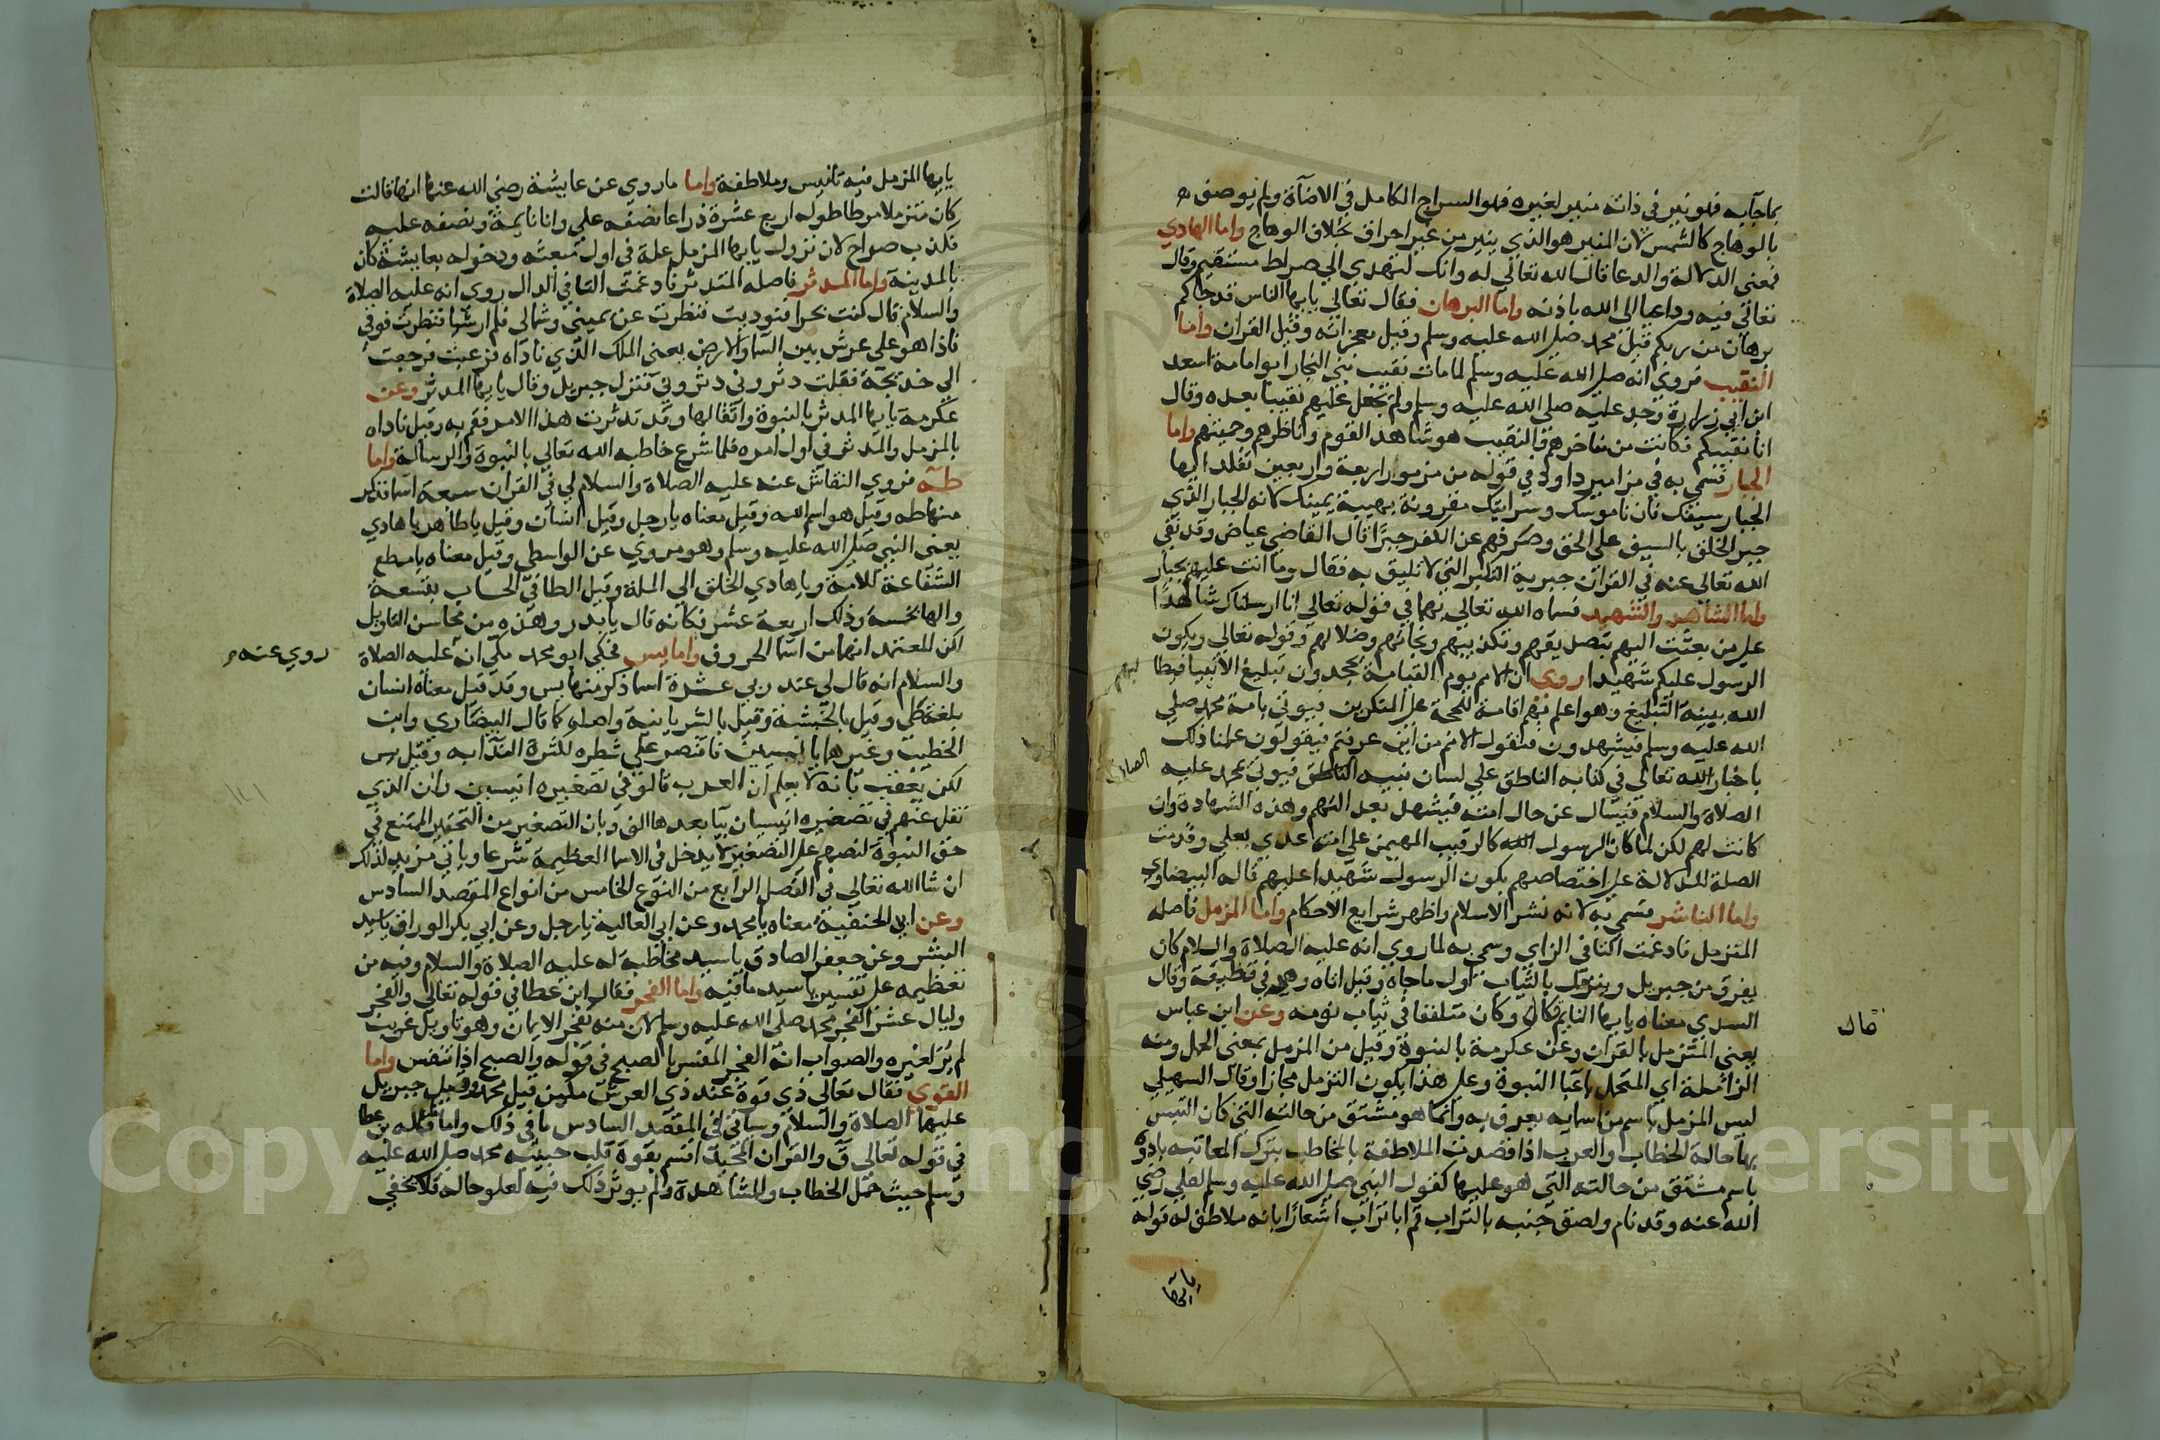 بما جآبه فهو نير في ذاته منير لغيره فهو السراج الكامل في الاضآة ولم يوصف
بالوهاج كالشمس لان المنير هو الذي ينير من غير احراق بخلاف الوهاج واما الهادي
فمعني الدلالة والدعا قال الله تعالي له وانك لتهدي الي صراط مستقيم وقال
تعالي فيه وداعيا الي الله باذنه واما البرهان فقال تعالي يايها الناس قد جاكم
برهان من ربكم قيل محمد صلي الله عليه وسلم وقيل معجزاته وقيل القران واما
النقيب فروي انه صلي الله عليه وسلم لما مات نقيب بني النجار ابو امامة اسعد
ابن ابي زرارة وجد عليه صلي الله عليه وسلم ولم يجعل عليهم نقيبا بعده وقال
انا نقيبكم فكانت من مفاخرهم فالنقيب هو شاهد القوم وناظرهم وضمينهم واما
الجبار فسمي به في مزامير داود في قوله من مزمور اربعة واربعين تقلد ايها
الجبار سيفك فان ناموسك وسرايعك مقرونة بهيبة يمينك لانه الجبار الذي
جبر الخلق بالسيف علي الحق وصرفهم عن الكفر جبرا قال القاضي عياض وقد نفي
الله تعالي عنه في القران جبرية التكبر التي لا تليق به فقال وما انت عليهم بجبار
واما الشاهد والشهيد فسماه الله تعالي بهما في قوله تعالي انا ارسلناك شاهدا
علي من بعثت اليهم بتصديقهم وتكذيبهم ونجاتهم وضلالهم وقوله تعالي ويكون
الرسول عليكم شهيدا روي ان الامم يوم القيامة يجحدون تبليغ الانبيا فيطالبهم
الله ببينة التبليغ وهو اعلم بهم اقامة للحجة علي المنكرين فيوتي بامة محمد صلي
الله عليه وسلم فيشهدون فتقول الامم من اين عرفتم فيقولون علمنا ذلك
باخبار الله تعالي في كتابه الناطق علي لسان نبيه الصادق فيوتي بمحمد عليه
الصلاة والسلام فيسال عن حال امته فيشهد بعدالتهم وهذه الشهادة وان
كانت لهم لكن لما كان الرسول كالرقيب المهيمن علي امته عدي بعلي وقدمت
الصلة للدلالة علي اختصاصهم بكون الرسول شهيدا عليهم قاله البيضاوي
واما الناشر فسمي به لانه نشر الاسلام واظهر شرايع الاحكام واما المزمل فاصله
المتزمل فادغمت التا في الزاي وسمي به لما روي انه عليه الصلاة والسلام كان
يفرق من جبريل ويتزمل بالثياب اول ما جاه وقيل اتاه وهو في قطيفة وقال
السدي معناه يايها النايم قال وكان متلففا في ثياب نومه وعن ابن عباس
يعني المتزمل بالقران وعن عكرمة بالنبوة وقيل من المزمل بمعني الحمل ومنه
الزاملة اي المتحمل باعبا النبوة وعلي هذا يكون التزمل مجازا وقال السهيلي
ليس المزمل باسم من اسمايه يعرف به وانما هو مشتق من حالته التي كان التبس
بها حالة الخطاب والعرب اذا قصدت الملاطفة بالمخاطب بترك المعاتبة نادوه
باسم مشتق من حالته التي هو عليها كقول النبي صلي الله عليه وسلم لعلي رضي
الله عنه وقد نام ولصق جنبه بالتراب قم ابا تراب اشعارا بانه ملاطف له فقوله
يا ايها
قال
يايها المزمل فيه تانيس وملاطفة واما ما روي عن عايشة رضي الله عنها انها قالت
كان متزملا مرطا طوله اربع عشرة ذراعا نصفه علي وانا نايمة ونصفه عليه
فكذب صراح لان نزول يايها المزمل بمكة في اول مبعثه ودخوله بعايشة كان
بالمدينة واما المدثر فاصله المتدثر فادغمت التا في الدال روي انه عليه الصلاة
والسلام قال كنت بحرا فنوديت فنظرت عن يميني وشمالي فلم ار شيا فنظرت فوقي
فاذا هو علي عرش بين السما والارض يعني الملك الذي ناداه فرعبت فرجعت
الي خديجة فقلت دثروني دثروني فنزل جبريل وقال يايها المدثر وعن
عكرمة يايها المدثر بالنبوة واثقالها وقد تدثرت هذا الامر فقم به وقيل ناداه
بالمزمل والمدثر في اول امره فلما شرع خاطبه الله تعالي بالنبوة والرسالة واما
طه فروي النقاش عنه عليه الصلاة والسلام لي في القران سبعة اسما فذكر
منها طه وقيل هو اسم الله وقيل معناه يا رجل وقيل انسان وقيل يا طاهر يا هادي
يعني النبي صلي الله عليه وسلم وهو مروي عن الواسطي وقيل معناه يا مطمع
الشفاعة للامة ويا هادي الخلق الي الملة وقيل الطا في الحساب بتسعة
والها بخمسة وذلك اربعة عشر فكانه قال يا بدر وهذه من محاسن التاويل
لكن المعتمد انها من اسما الحروف واما يس فحكي ابو محمد مكي انه عليه الصلاة
روي عنه
والسلام انه قال لي عند ربي عشرة اسما ذكر منها يس وقد قيل معناه انسان
بلغة طي وقيل بالحبشة وقيل بالسريانية واصله كما قال البيضاوي وابن
الخطيب وغيرهما يا انيسين فاقتصر علي شطره لكثرة الندا به وقيل يس
لكن تعقب بانه لا يعلم ان العرب قالوا في تصغيره انيسين وان الذي
نقل عنهم في تصغيره انيسيان بيا بعدها الف وبان التصغير من التحقير الممتنع في
حق النبوة لنصهم علي التصغير لا يدخل في الاسما العظيمة شرعا وياتي مزيد لذلك
ان شا الله تعالي في الفصل الرابع من النوع الخامس من انواع المقصد السادس
وعن ابن الحنفية معناه يا محمد وعن ابي العالية يا رجل وعن ابي بكر الوراق يا سيد
البشر وعن جعفر الصادق يا سيد مخاطبة له عليه الصلاة والسلام وفيه من
تعظيمه علي تفسير يا سيد ما فيه واما الفجر فقال ابن عطا في قوله تعالي والفجر
وليال عشر الفجر محمد صلي الله عليه وسلم لان منه تفجر الايمان وهو تاويل غريب
لم ير لغيره والصواب انه الفجر المفسر بالصبح في قوله والصبح اذا تنفس واما
القوي فقال تعالي ذي قوة عند ذي العرش مكين قيل محمد وقيل جبريل
عليهما الصلاة والسلام وسياتي في المقصد السادس ما في ذلك واما قوله بن عطا
في قوله تعالي ق والقران المجيد اقسم بقوة قلب حبيبه محمد صلي الله عليه
وسلم حيث حمل الخطاب والمشاهدة ولم يوثر ذلك فيه لعلو حاله فلا يخفي
Copy University